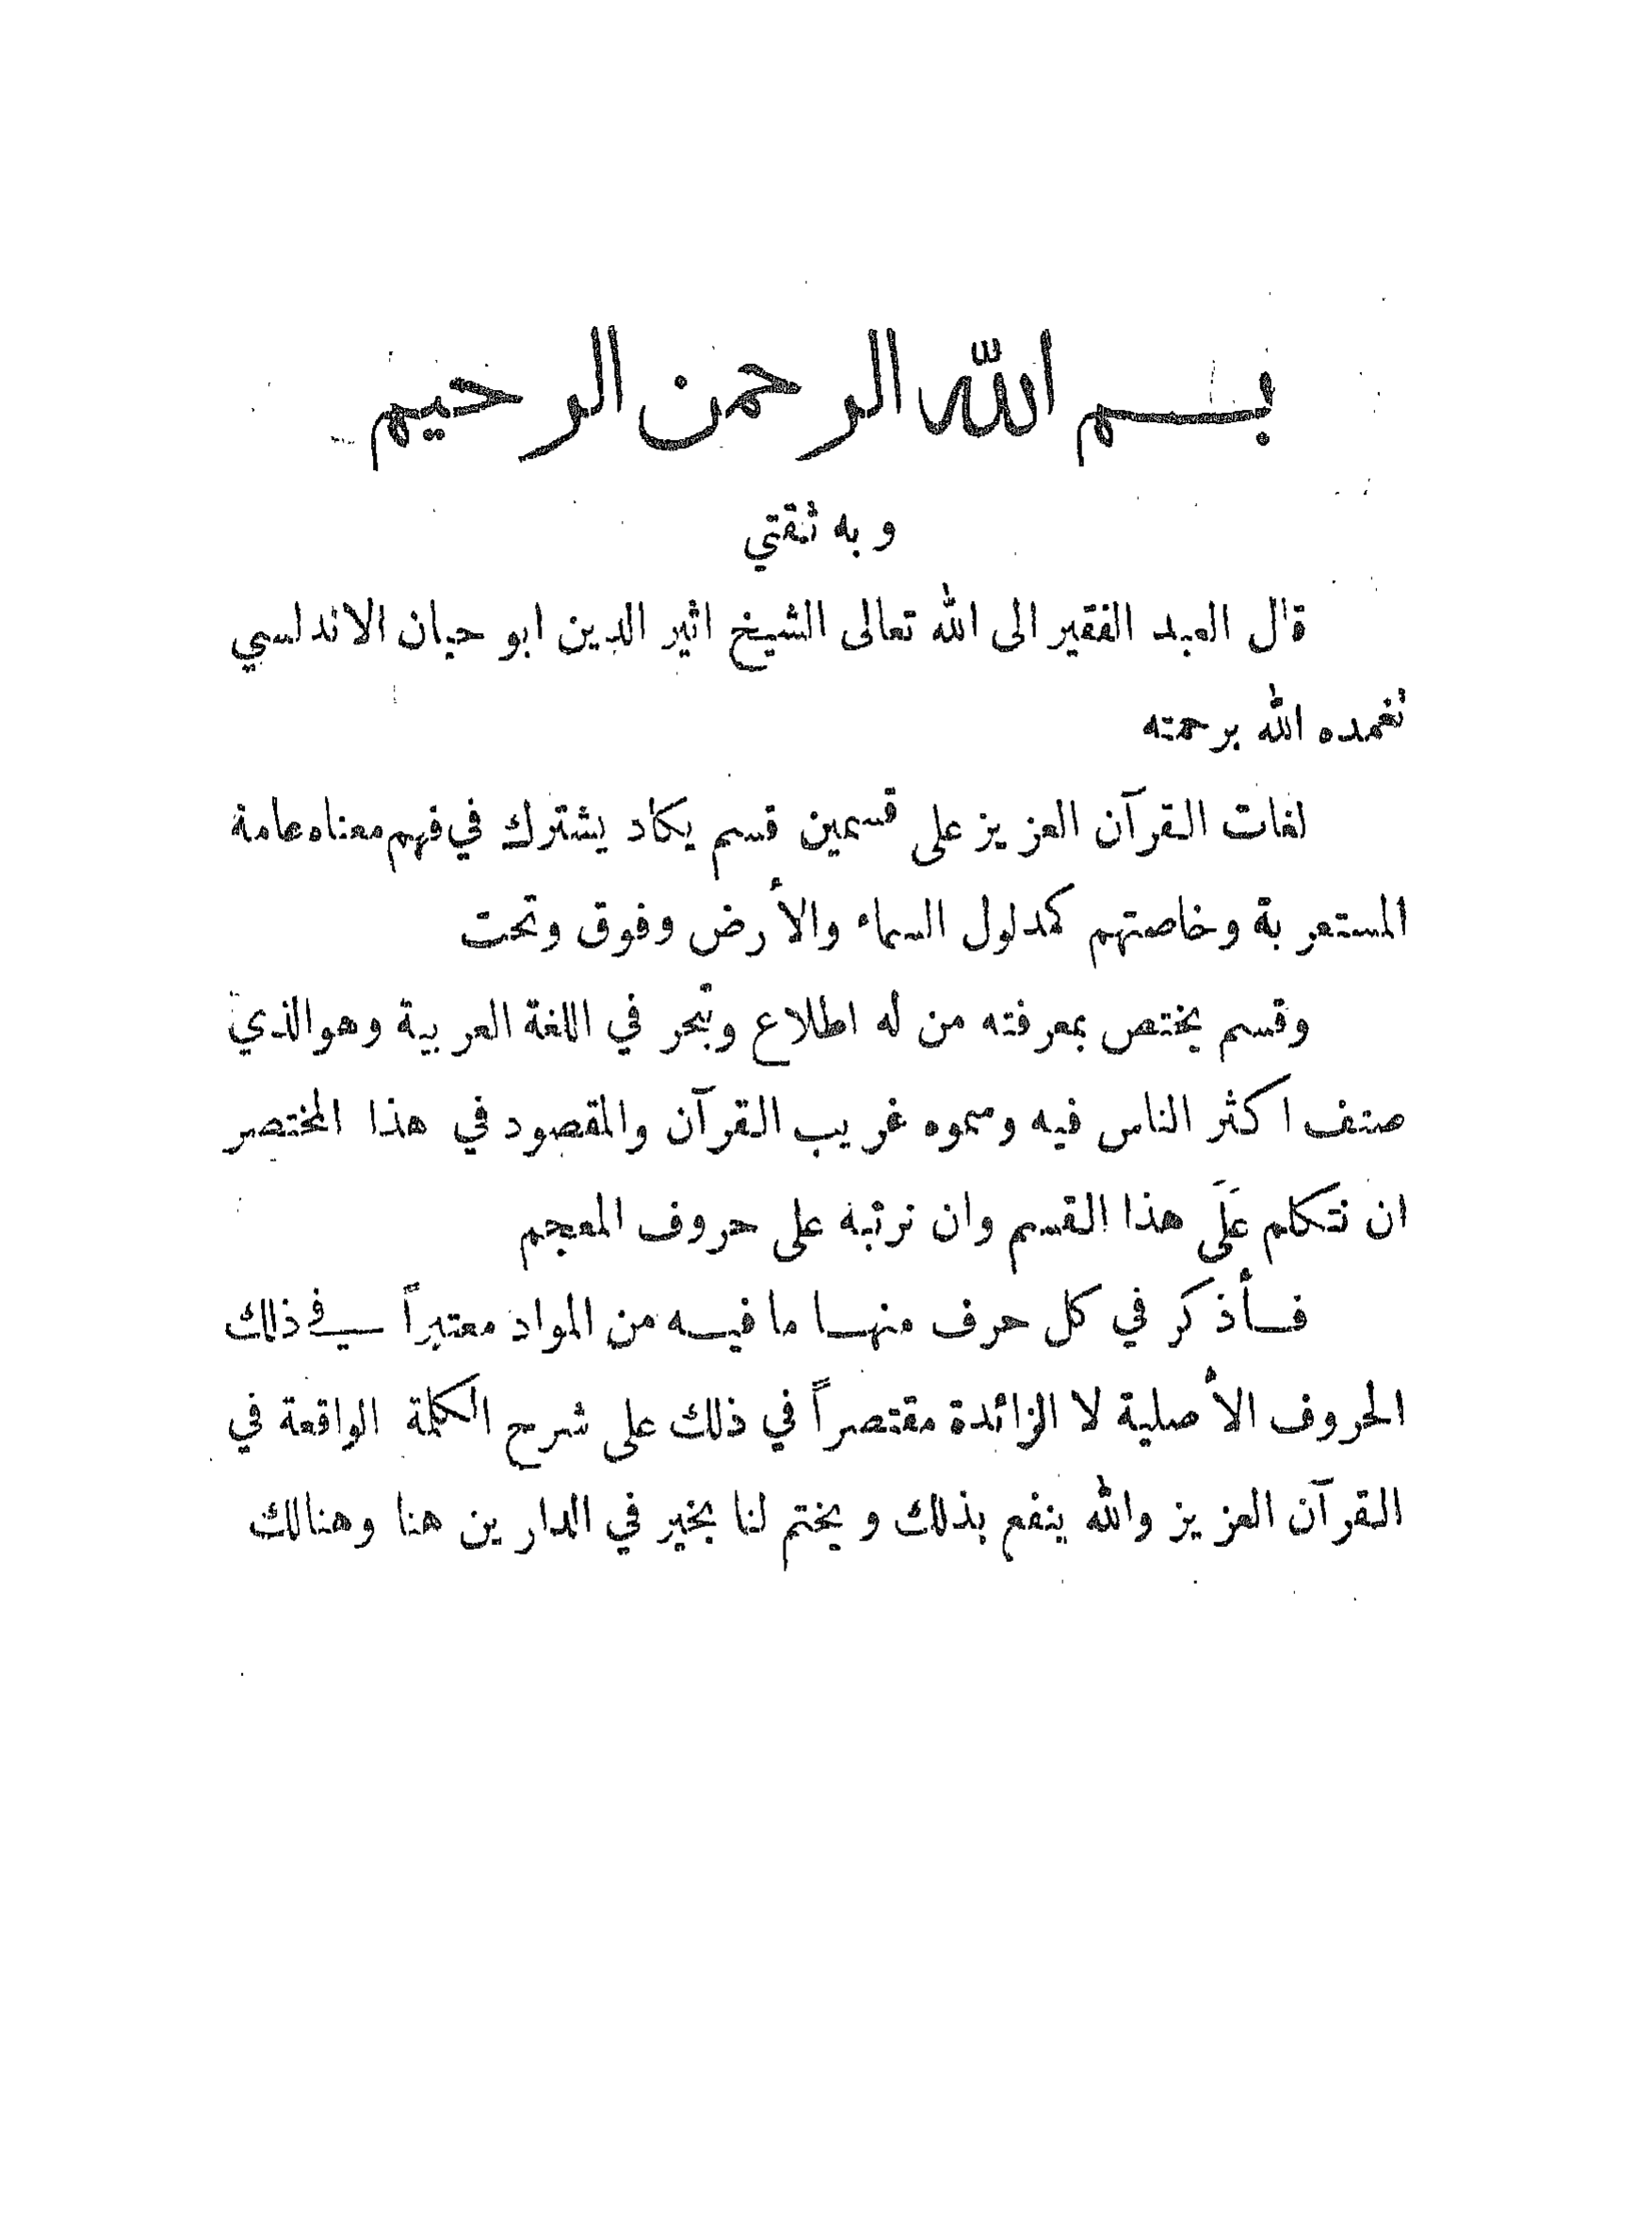 بسم الله الرحمن الرحيم
وبه ثقتي
قال العبد الفقير الى الله تعالى الشيخ اثير الدين ابو حيان الاندلسي
تغمده الله برحمته
لغات القرآن العزيز على قسمين قسم يكاد يشترك في فهم معناه عامة
المستعربة وخاصتهم كمدلول السماء والأرض وفوق وتحت
وقسم يختص بمعرفته من له اطلاع وتبحر في اللغة العربية وهو الذي
صنف اكثر الناس فيه وسموه غريب القرآن والمقصود في هذا المختصر
ان نتكلم عَلَى هذا القسم وان نرتبه على حروف المعجم
فسأذكر في كل حرف منها ما فيه من المواد معتبراً في ذلك
الحروف الأصلية لا الزائدة مقتصراً في ذلك على شرح الكلمة الواقعة في
القرآن العزيز والله ينفع بذلك ويختم لنا بخير في الدارين هنا وهنالك